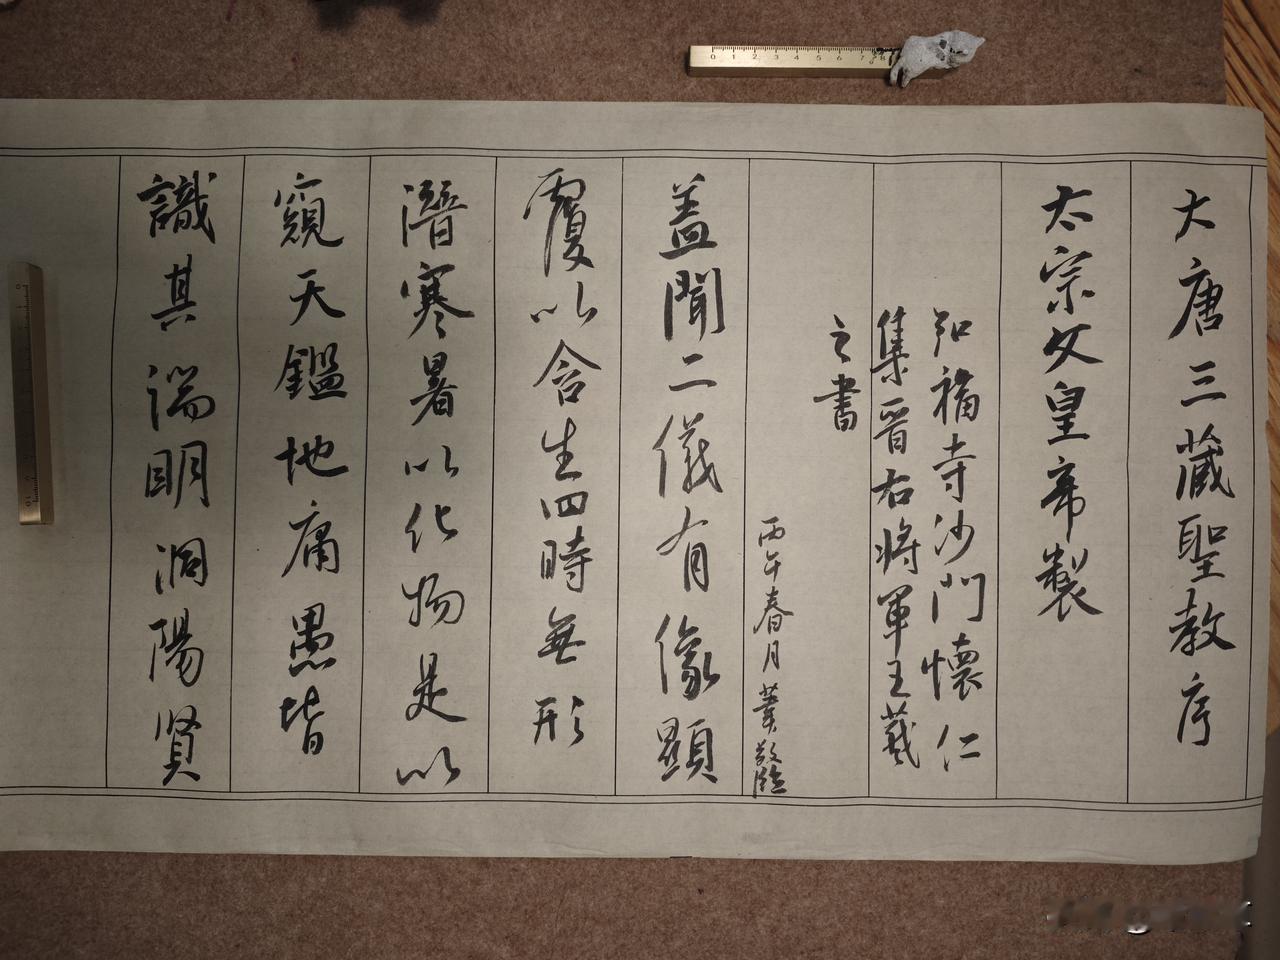 大唐三藏聖教序
太宗文皇帝製
弘福寺沙門懷仁
集晉右將軍王羲
之書
丙午春月敬臨
盖聞二儀有像顯
覆以含生四時無形
潛寒暑以化物是以
窺天鑑地庸愚皆
識其端明洞陽賢
0 1 2 3 4 5 6 7